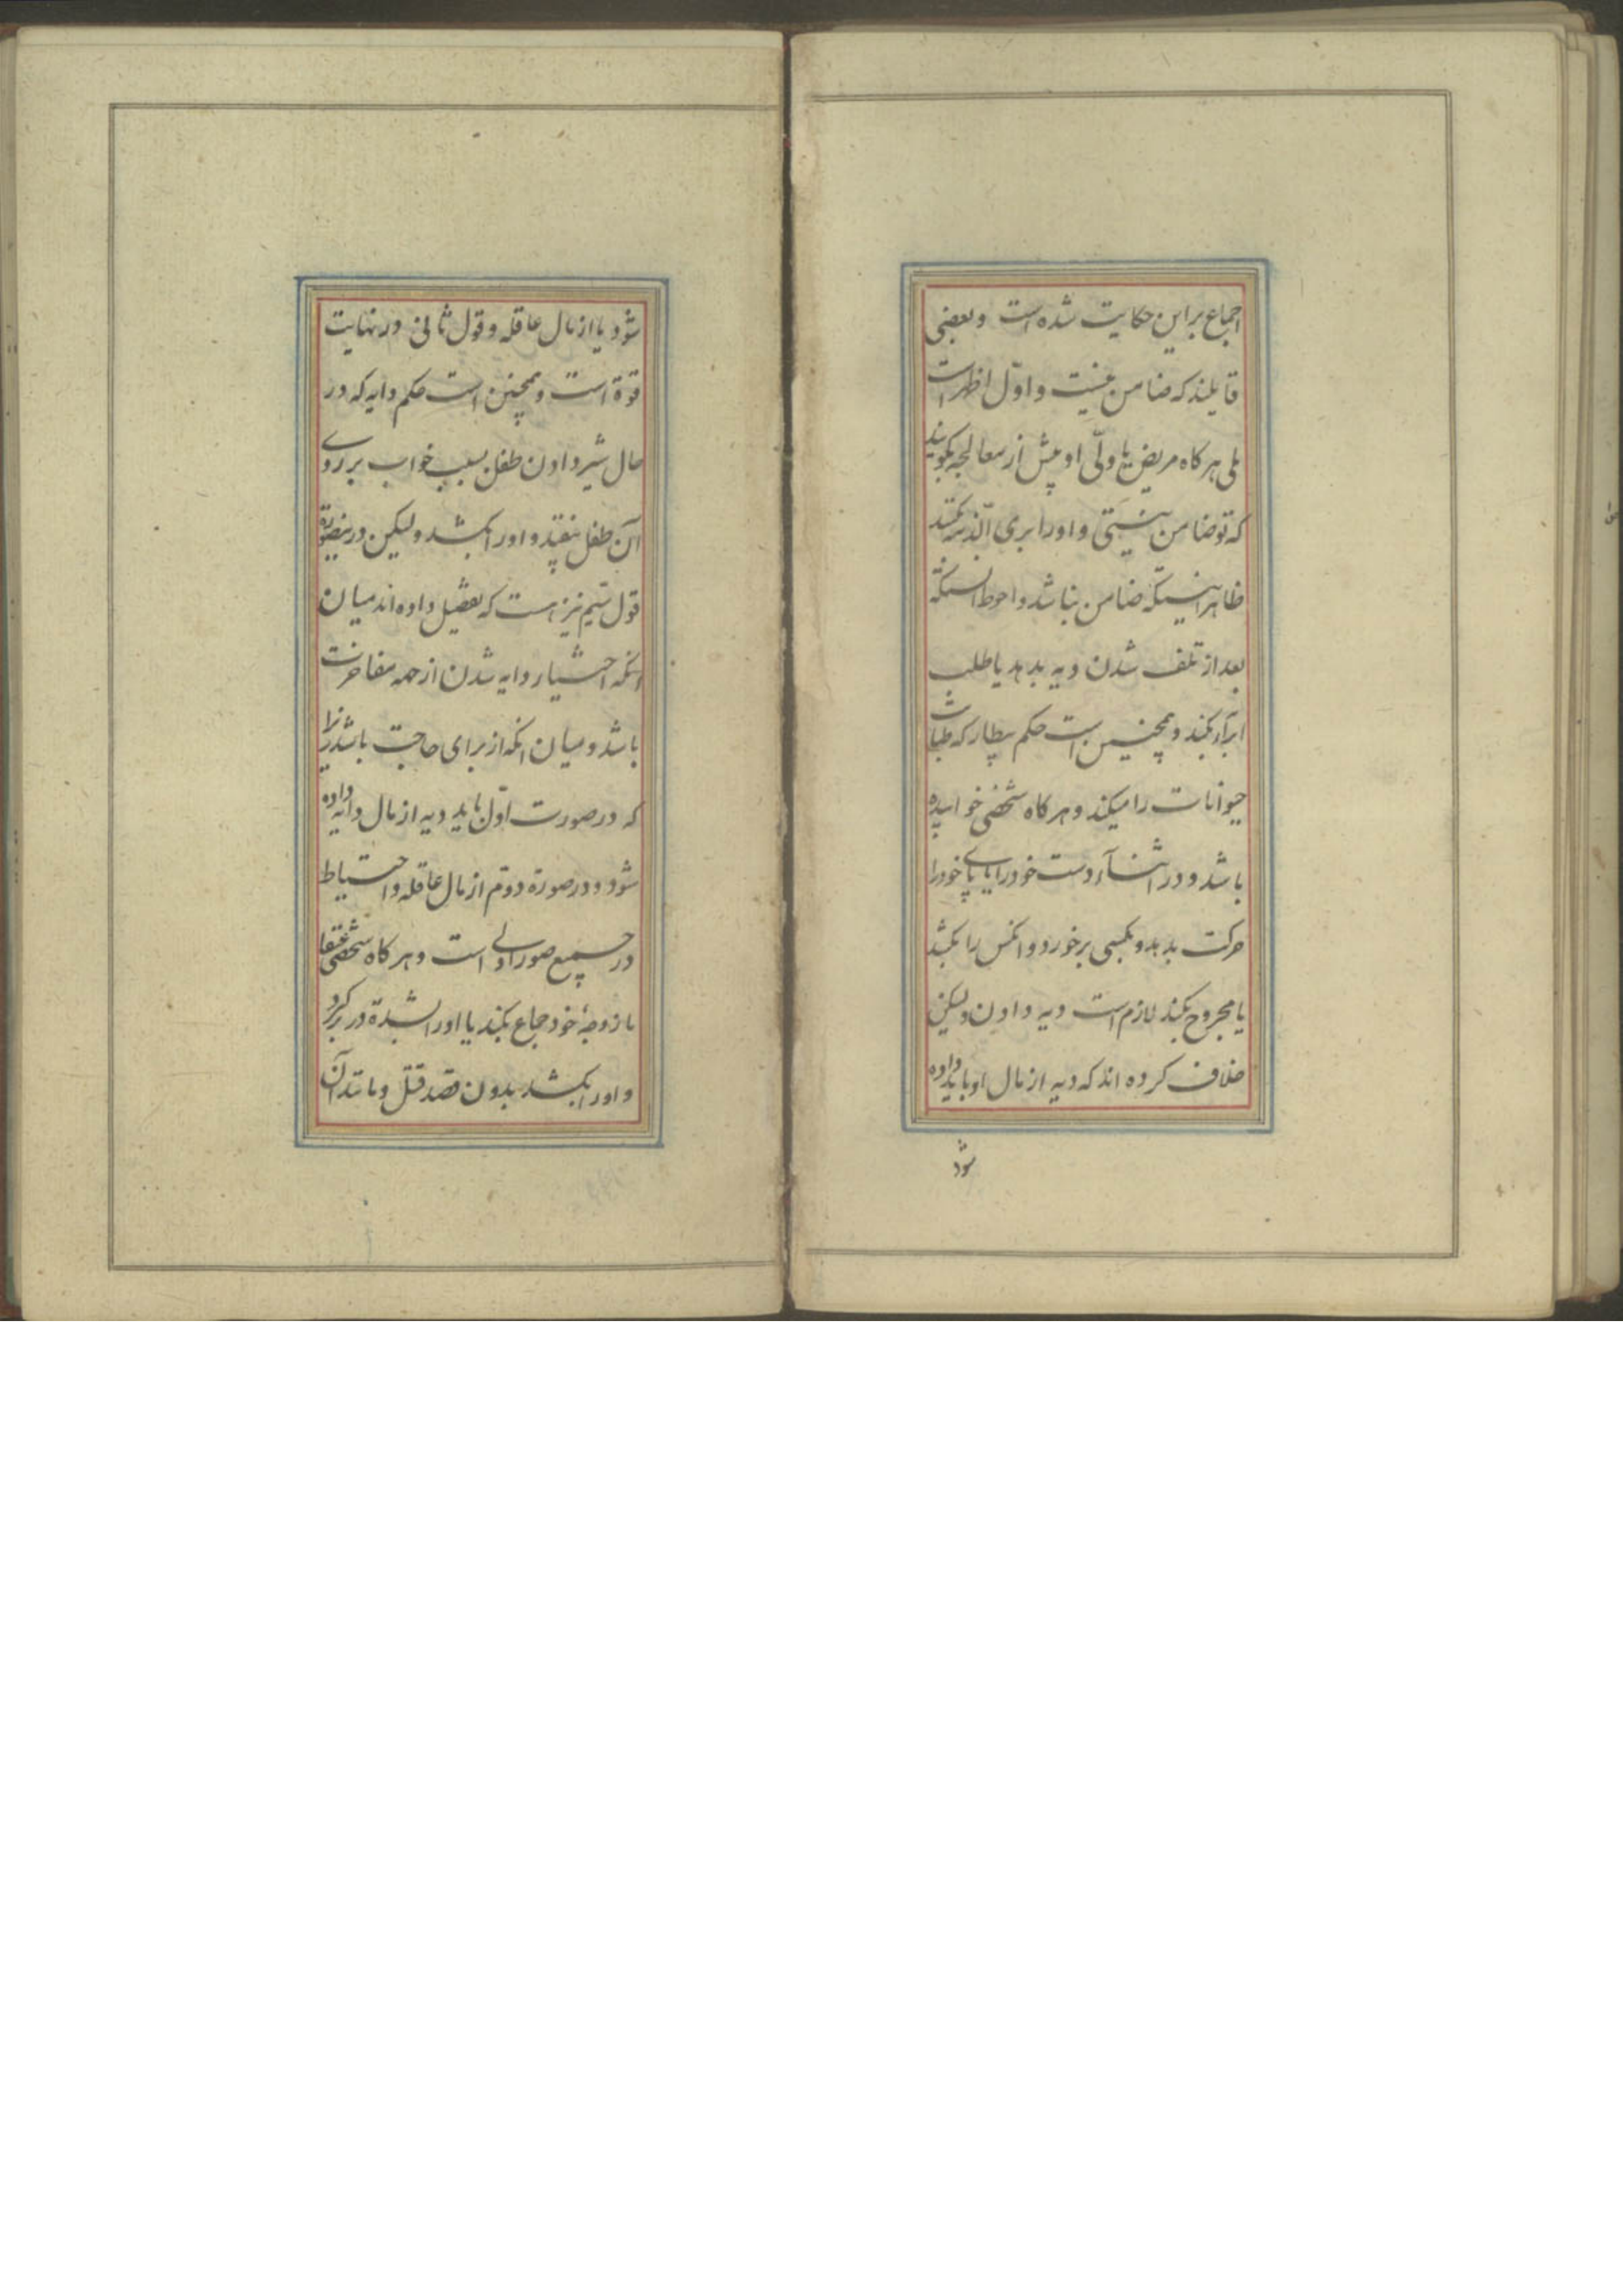 اجماع بر این حکایت شده است و بعضی
قایلند که ضامن نیست و اوّل اظهر است
بلی هر کاه مریض یا ولّی او پیش از معالجه بکویند
که تو ضامن نیستی و او را بری الذمه بکنند
ظاهر اینستکه ضامن نباشد و احوط اینستکه
بعد از تلف شدن دیه بدهد یا طلب
ابرآء بکند و همچنین است حکم بیطار که طبابت
حیوانات را میکند و هر کاه شخصی خوابیده
باشد و در اثنآء دست خود را یا پای خود را
حرکت بدهد و بکسی برخورد و انکس را بکشد
یا مجروح بکند لازم است دیه دادن و لیکن
خلاف کرده اند که دیه از مال او باید داده
شود
شود یا از مال عاقله و قول ثانی در نهایت
قوة است و همچنین است حکم دایه که در
حال شیر دادن طفل بسبب خواب بر روی
آن طفل بیفتد و او را بکشد و لیکن در اینصورة
قول سیّم نیز هست که تفصیل داده اند میان
انکه اختیار دایه شدن از جهه مفاخرت
باشد و میان انکه از برای حاجت باشد زیرا
که در صورت اوّل باید دیه از مال دایه داده
شود و در صورة دوّم از مال عاقله و احتیاط
در جمیع صور اولی است و هر کاه شخصی
با زوجهٔ خود جماع بکند یا او را بشدة در بر کیرد
و او را بکشد بدون قصد قتل و مانند آن